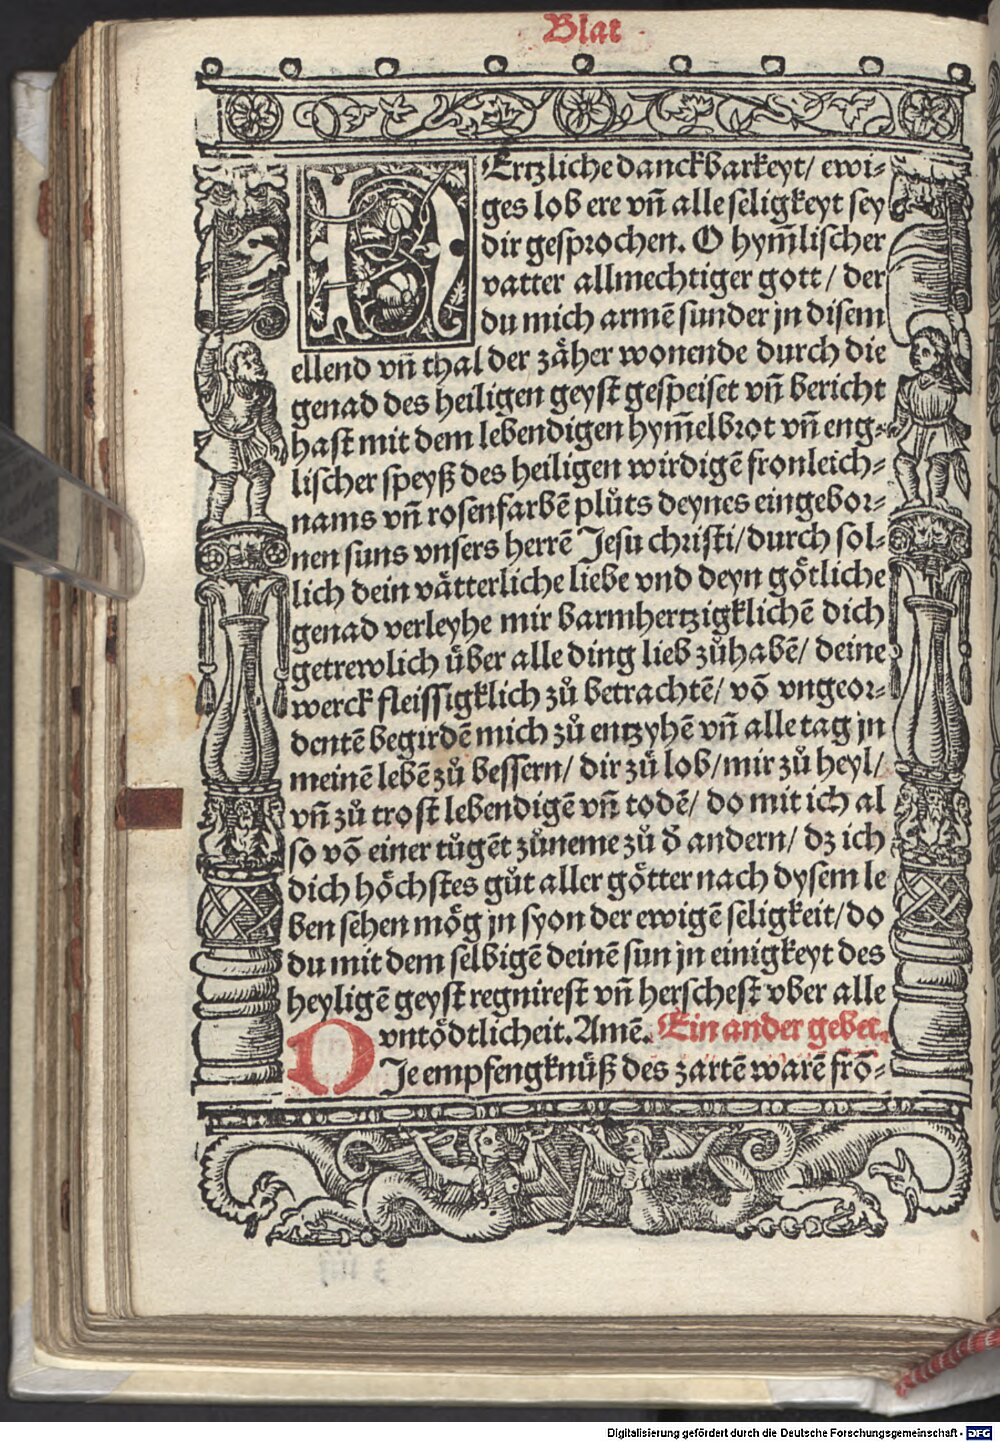 Blat
HErtzliche danckbarkeyt/ ewi-
ges lob ere vñ alle seligkeyt sey
dir gesprochen. O hym̄lischer
vatter allmechtiger gott/ der
du mich armē sunder jn disem
ellend vñ thal der zäher wonende durch die
genad des heiligen geyst gespeiset vñ bericht
hast mit dem lebendigen hym̄elbrot vñ eng-
lischer speyß des heiligen wirdigē fronleich-
nams vñ rosenfarbē plůts deynes eingebor-
nen suns vnsers herrē Jesu christi/ durch sol-
lich dein vätterliche liebe vnd deyn götliche
genad verleyhe mir barmhertzigklichē dich
getrewlich über alle ding lieb zůhabē/ deine
werck fleissigklich zů betrachtē/ vō vngeor-
dentē begirdē mich zů entzyhē vñ alle tag jn
meinē lebē zů bessern/ dir zů lob/ mir zů heyl/
vñ zů trost lebendigē vñ todē/ do mit ich al
so vō einer tůgēt zůneme zů d̄ andern/ dz ich
dich höchstes gůt aller götter nach dysem le
ben sehen mög jn syon der ewigē seligkeit/ do
du mit dem selbigē deinē sun jn einigkeyt des
heyligē geyst regnirest vñ herschest vber alle
vntödtlicheit. Amē. Ein ander gebet.
DJe empfengknüß des zartē warē frō-
Digitalisierung gefördert durch die Deutsche Forschungsgemeinschaft - DFG